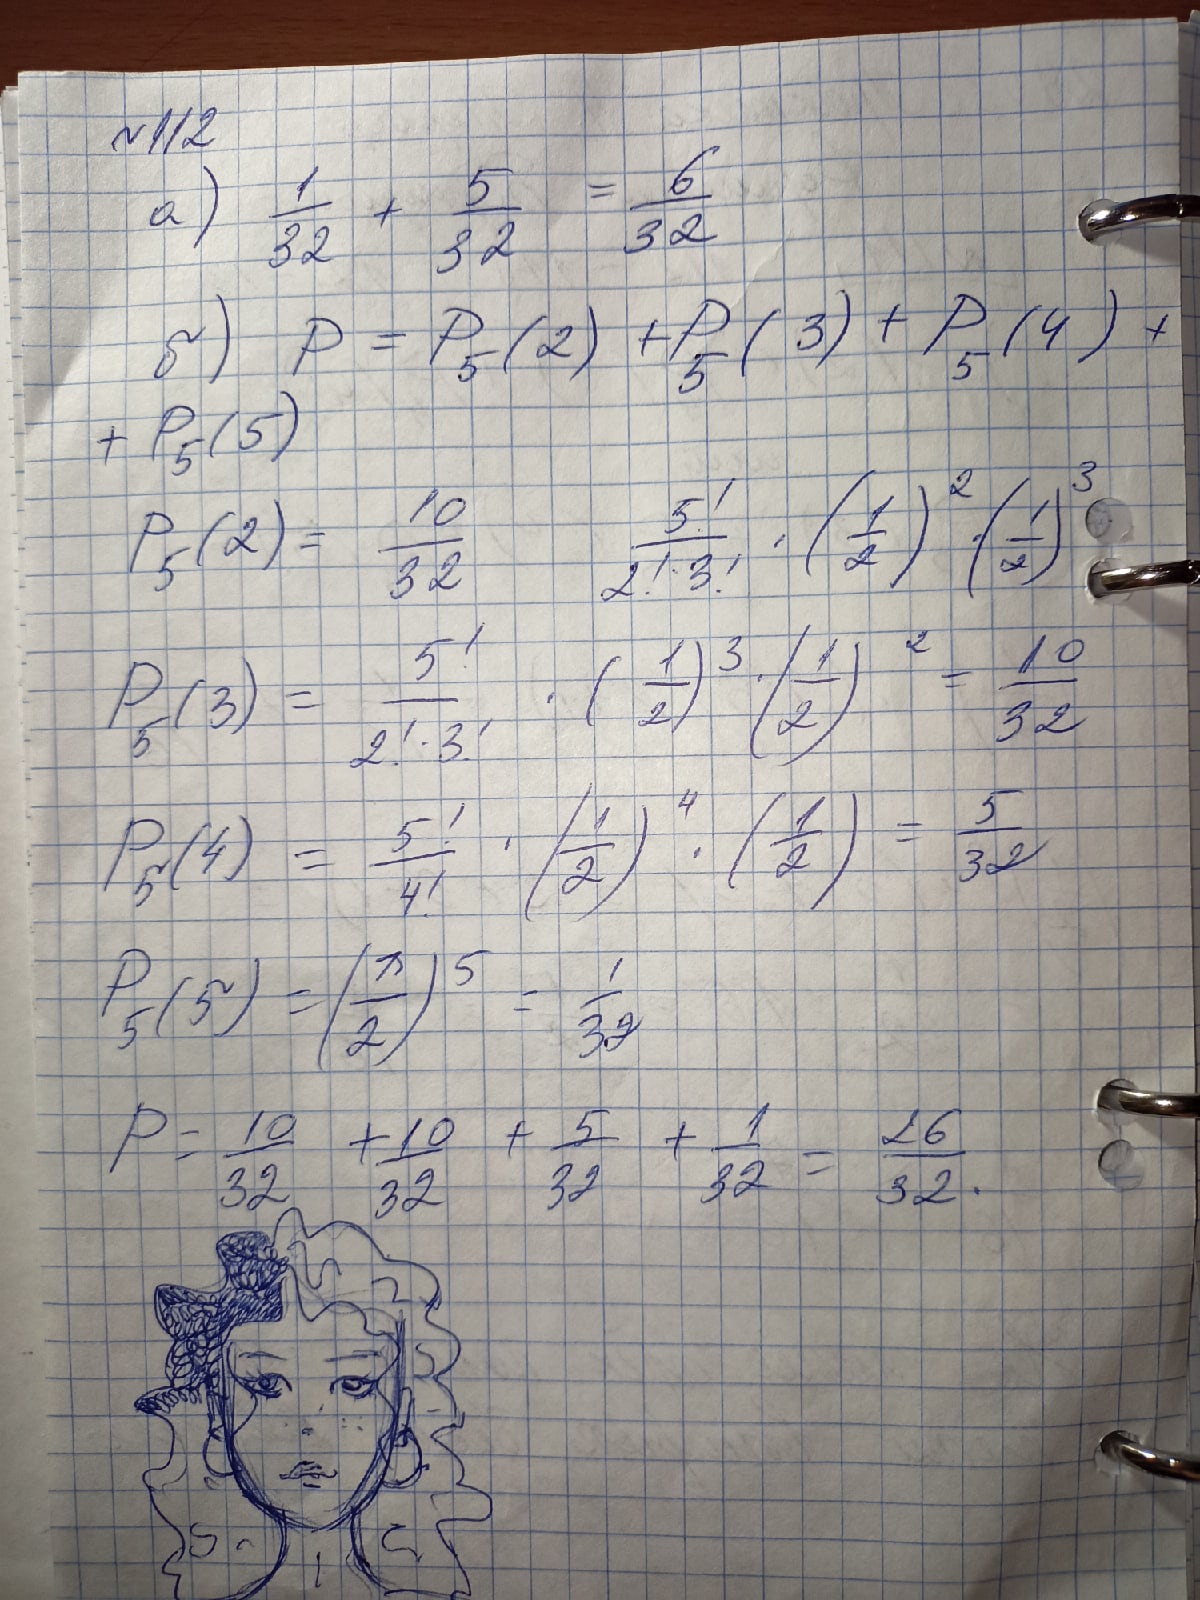 №112
а) 1/32 + 5/32 = 6/32
б) P = P₅(2) + P₅(3) + P₅(4) +
+ P₅(5)
P₅(2) = 10/32 5!/(2!·3!) · (1/2)² · (1/2)³
P₅(3) = 5!/(2!·3!) · (1/2)³ · (1/2)² = 10/32
P₅(4) = 5!/4! · (1/2)⁴ · (1/2) = 5/32
P₅(5) = (1/2)⁵ = 1/32
P = 10/32 + 10/32 + 5/32 + 1/32 = 26/32.